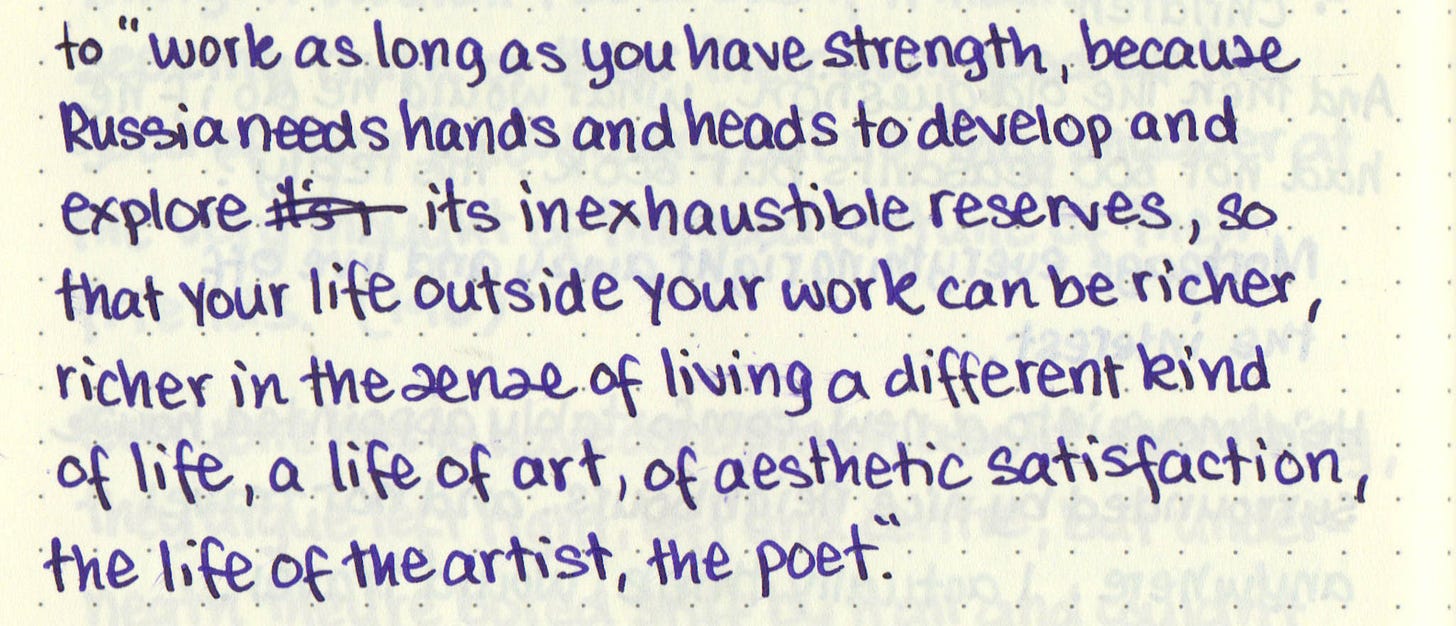 to "work as long as you have strength, because
Russia needs hands and heads to develop and
explore its inexhaustible reserves, so
that your life outside your work can be richer,
richer in the sense of living a different kind
of life, a life of art, of aesthetic satisfaction,
the life of the artist, the poet."